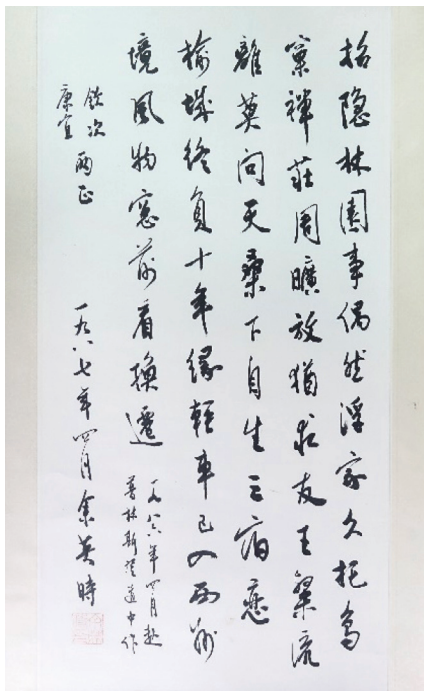 招隐林園事偶然浮家久托鳥
窠禪莊周曠放猶求友王粲流
離莫問天桑下自生三宿戀
榆城終負十年緣輕車已入西州
境風物窓前看換遷
一九八六年四月赴
普林斯頓道中作
欽次
康宜
兩正
一九八七年四月余英時